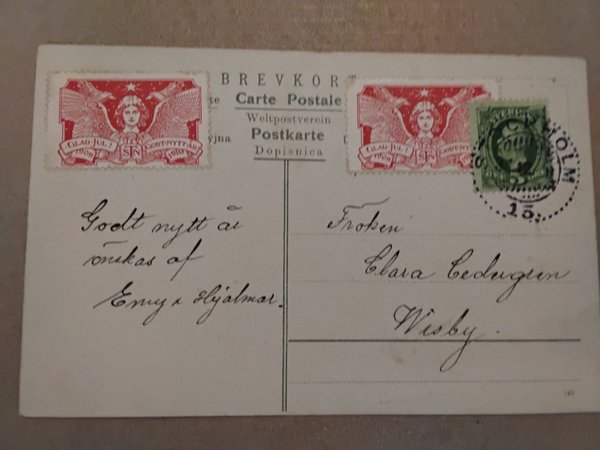 BREVKORT
Carte Postale
Weltpostverein
Postkarte
Dopisnica
GLAD JUL! GODT NYTT ÅR
1909 1910
GLAD JUL!
1909
Godt nytt år
önskas af
Emy & Hjalmar.
Fröken
Clara Cedergren
Wisby.
STOCKHOLM
15.